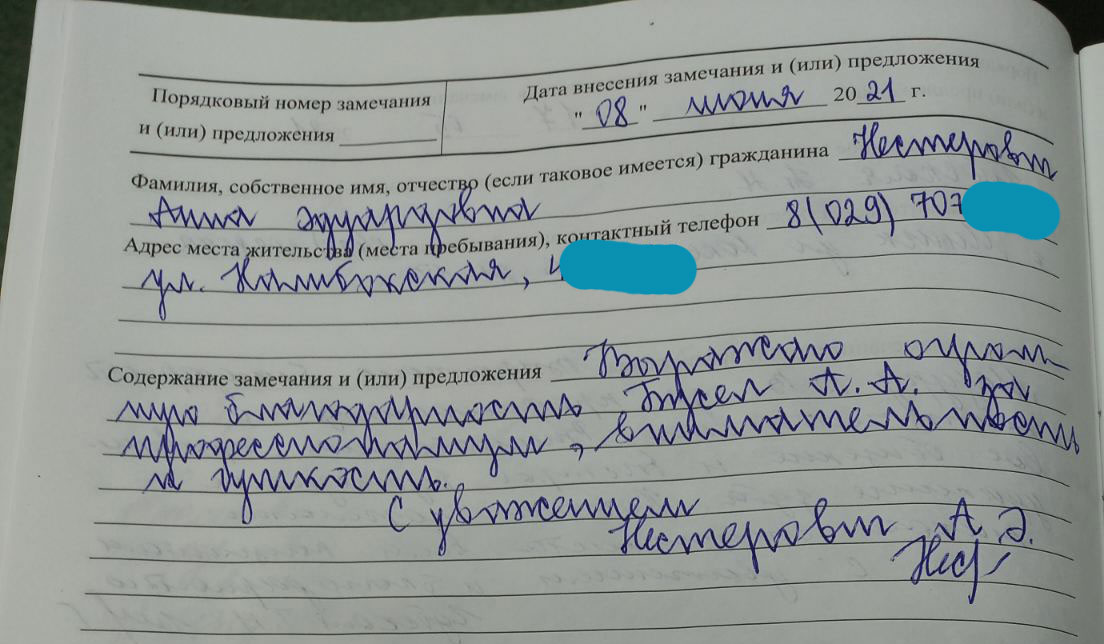 Порядковый номер замечания
и (или) предложения
Дата внесения замечания и (или) предложения
"08" июня 2021 г.
Фамилия, собственное имя, отчество (если таковое имеется) гражданина Нестерович
Анна Эдуардовна
Адрес места жительства (места пребывания), контактный телефон 8(029) 707
ул. Налибокская, 4
Содержание замечания и (или) предложения Выражаю огром
ную благодарность Бусел А. А. за
профессионализм, внимательность
и чуткость.
С уважением
Нестерович А.Э.